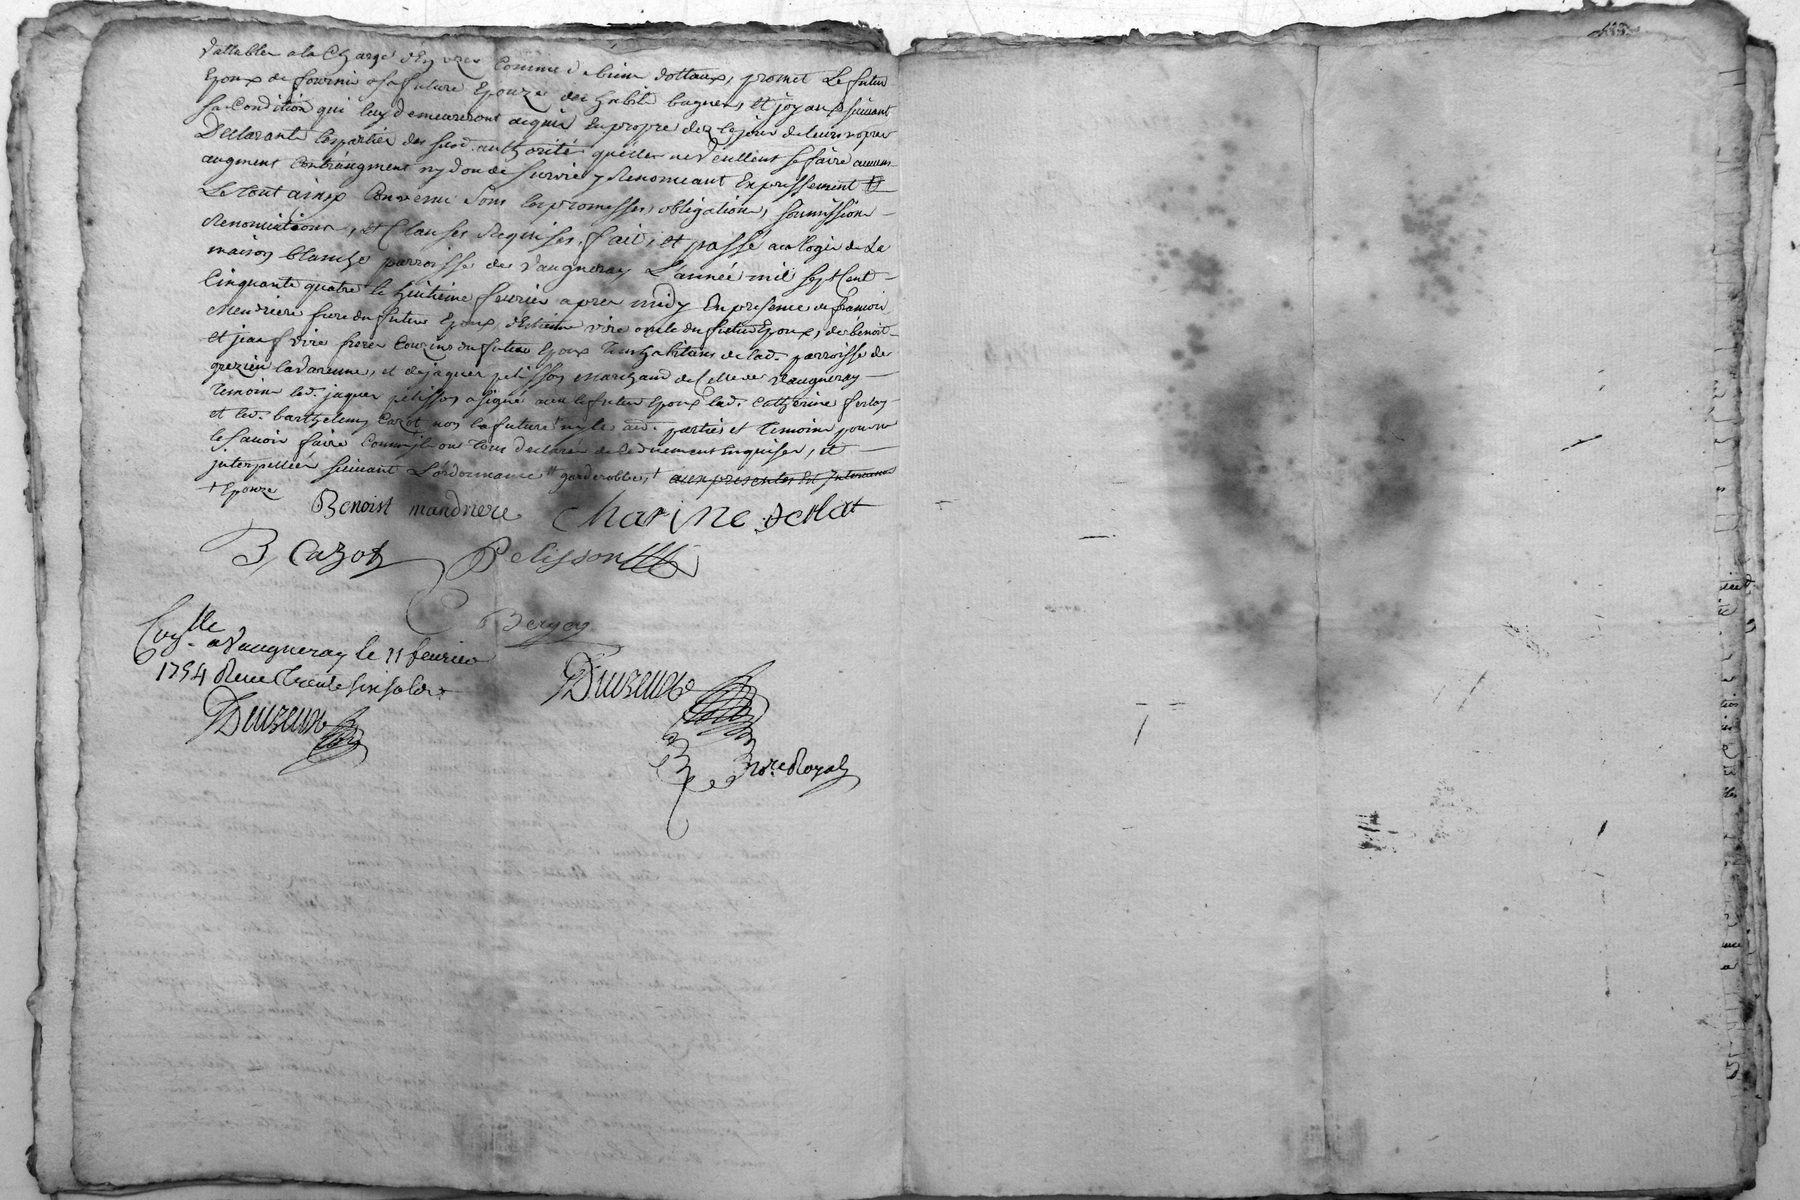 d'attelier a la Charge d'En user Comme de biens dottaux, promet Le futur
Epoux de fournir a sa future Epouze des habits bagues, et joyaux suivant
sa Condition qui luy demeureront acquis En propre dez le jour de leurs nopces
Declarants les parties de leurd. authorité qu'elles ne veullent se faire aucuns
augment Contraugment ny don de survie y Renonceant Expressement Et
Le tout ainsy Convenu Sous les promesses, obligations, soumissions
Renonciations, et Clauses Requises, fait, et passé au logis de La
maison blanche parroisse de Vaugneray L'année mil sept Cent
Cinquante quatre le huitieme fevrier apres midy En presence de francois
Mendriere frere du futur Epoux, d'Estienne vire oncle du futur Epoux, de benoit
et jean vire freres Cousins du futur Epoux tous habitans de lad. parroisse de
grezieu lavarenne, et de jaques pelisson marchand de Celle de Vaugneray
temoins led. jaques pelisson a signé avec le futur Epoux lad. Catherine ferlay
et led. barthelemy Cazot non la future ny les aud. parties et temoins pour ne
le savoir faire Comme ils ont tous declaré de ce duement Enquises, et
interpellées suivant L'ordonnance # garderobbes, + aux presentes Est Intervenue
+ Epouze
Benoist mandriere Charine
B, Cazot Pelisson
Berjon
Con.lle a Vaugneray le 11 fevrier
1754 Receu Trente six sols
Duuzeux
Duuzeux
No.re Royal